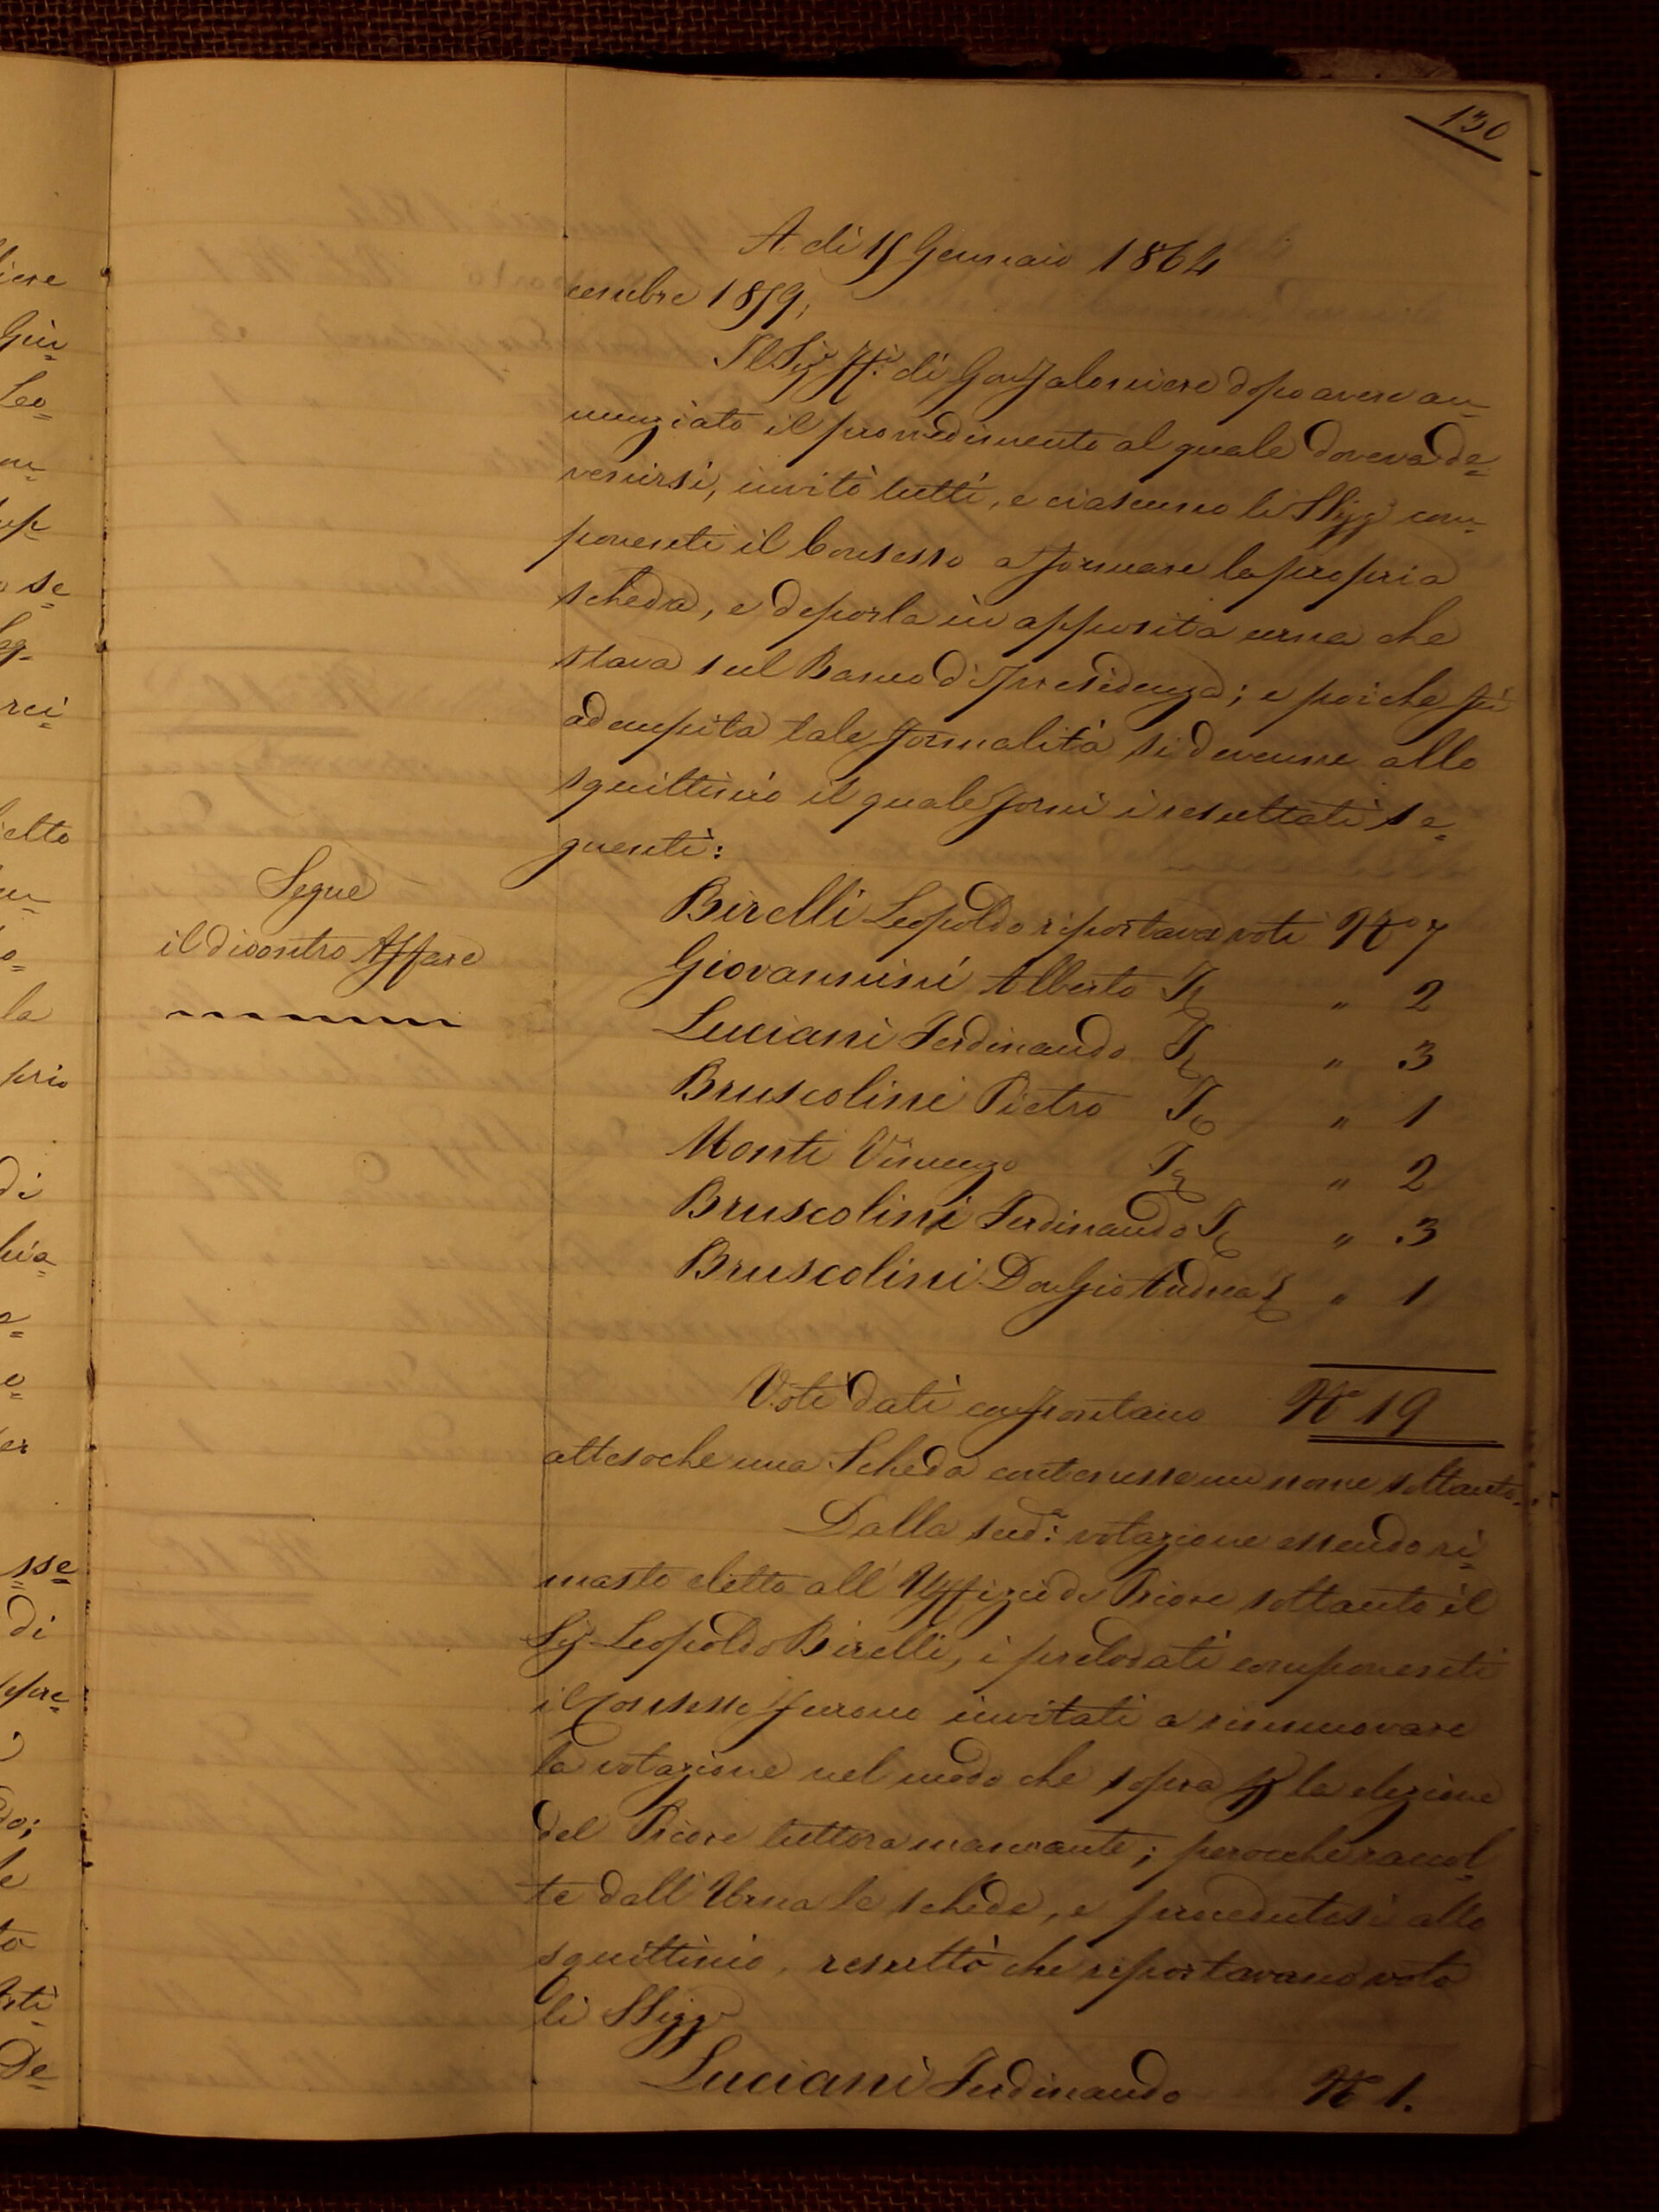 130
A dì 15 Gennaio 1864
cembre 1859,
Il Sig.r ff.i di Gonfaloniere dopo avere an-
nunziato il provvedimento al quale doveva de=
venirsi, invitò tutti, e ciascuno li SSigg.i com-
ponenti il Consesso a formare la propria
scheda, e deporla in apposita urna che
stava sul Banco di Presidenza; e poiche fù
adempita tale formalità si devenne allo
squittinio il quale fornì i resultati se=
guenti:
Segue
il dicontro Affare
Birelli Leopoldo riportava voti N.o 7
Giovannini Alberto " 2
Luciani Ferdinando " 3
Bruscolini Pietro " 1
Monti Vincenzo " 2
Bruscolini Ferdinando " 3
Bruscolini Don Gio Andrea " 1
Voti dati confrontano N.o 19
attesoche una Scheda contenesse un nome soltanto.
Dalla sud.a votazione essendo ri=
masto eletto all'Uffizio di Priore soltanto il
Sig.r Leopoldo Birelli, i prelodati componenti
il Consesso furono invitati a rinnuovare
la votazione nel modo che sopra p la elezione
del Priore tuttora mancante; perocche raccol-
te dall'Urna le schede, e procedutosi allo
squittinio, resultò che riportavano voto
li SSigg.i
Luciani Ferdinando N.o 1.
iere
Leo=
se
rci=
etto
la
prio
di
sse
di
De=